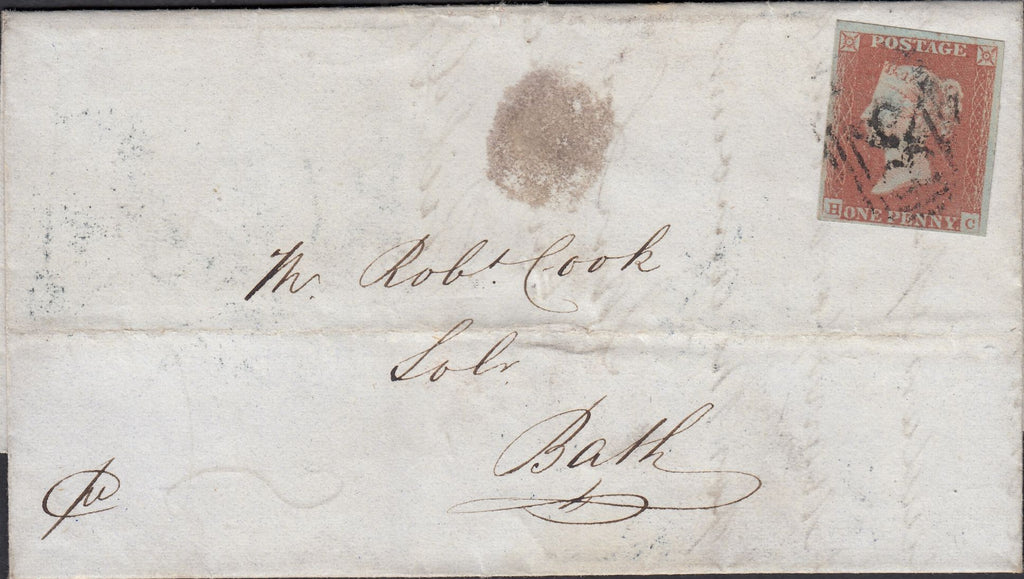 POSTAGE
H ONE PENNY. C
Mr. Robt Cook
Solr
Bath